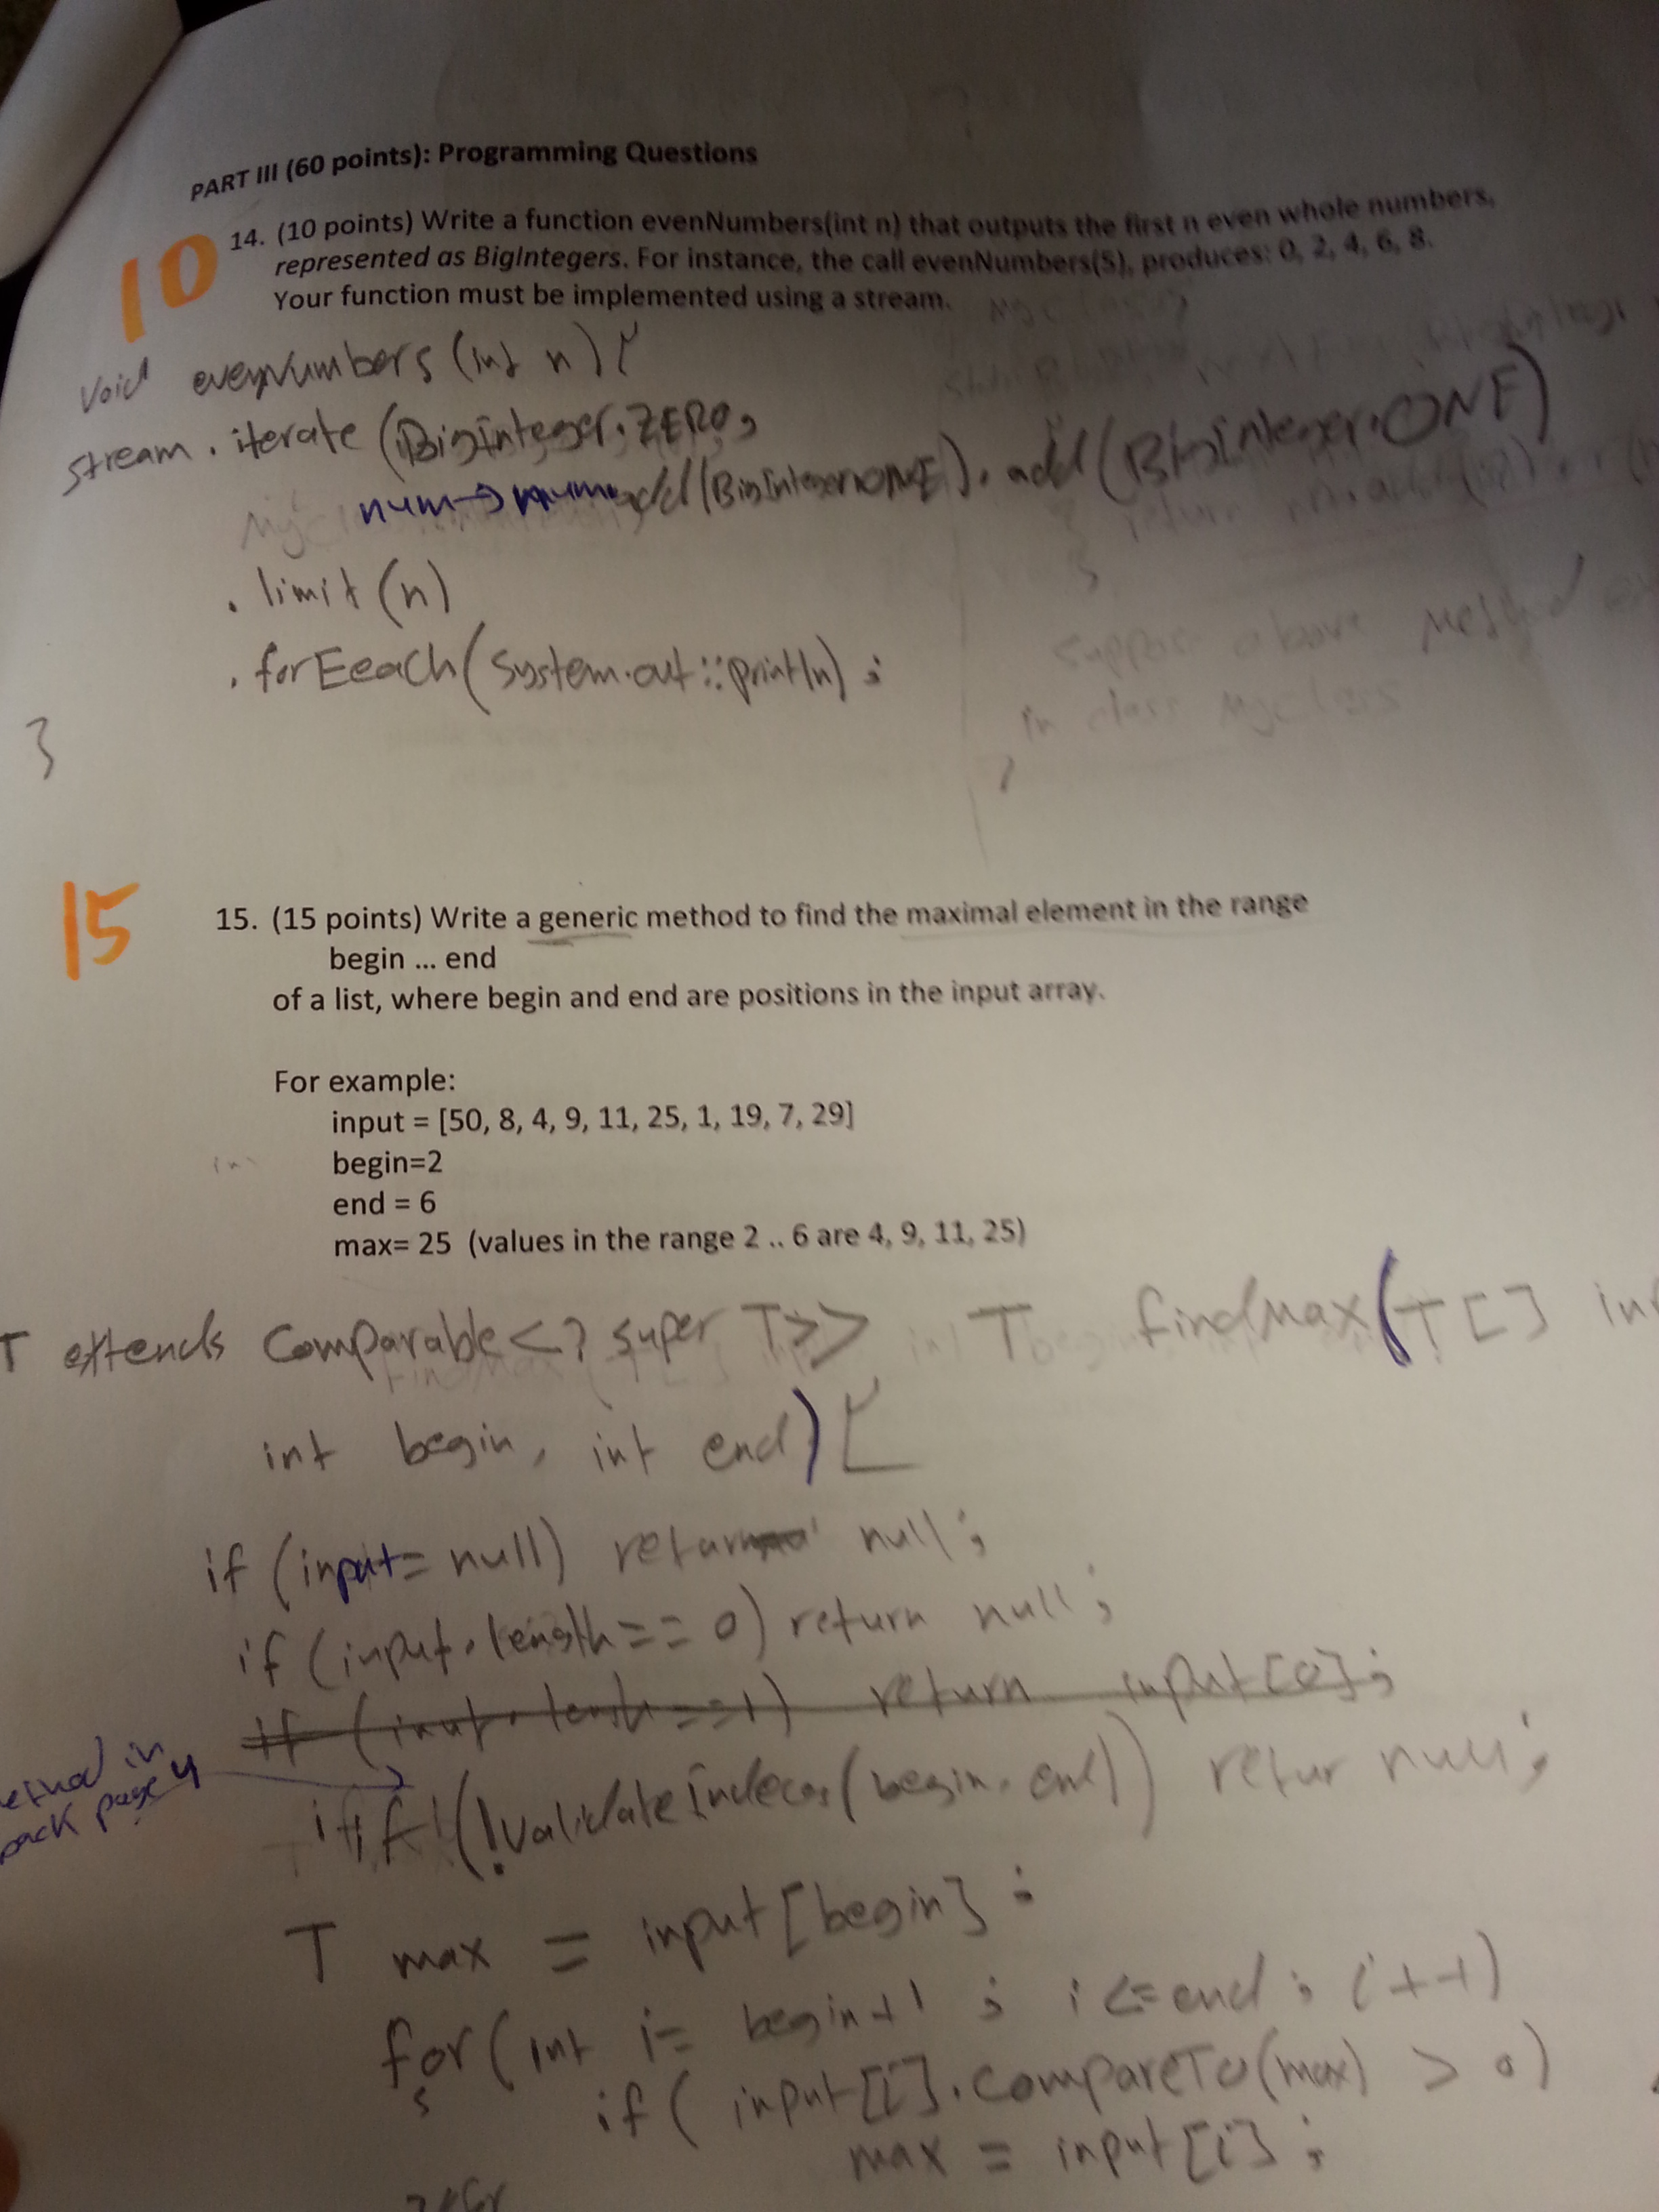 PART III (60 points): Programming Questions
10
14. (10 points) Write a function evenNumbers(int n) that outputs the first n even whole numbers,
represented as BigIntegers. For instance, the call evenNumbers(5), produces: 0, 2, 4, 6, 8.
Your function must be implemented using a stream.
void evenNumbers (int n) {
stream . iterate (BigInteger.ZERO,
num → num.add(BigInteger.ONE).add(BigInteger.ONE)
. limit (n)
. forEeach(System.out::println) ;
}
suppose above method
in class MyClass
15
15. (15 points) Write a generic method to find the maximal element in the range
begin ... end
of a list, where begin and end are positions in the input array.
For example:
input = [50, 8, 4, 9, 11, 25, 1, 19, 7, 29]
begin=2
end = 6
max= 25 (values in the range 2 .. 6 are 4, 9, 11, 25)
T extends Comparable<? super T>> T findMax(T[]
int begin, int end) {
if (input= null) return null ;
if (input.length == 0) return null ;
return input[0];
if (!validateIndeces(begin, end)) retur null ;
back page
T max = input [begin] ;
for (int i= begin+1 ; i <= end ; i++)
if ( input[i].compareTo(max) > 0)
max = input[i] ;